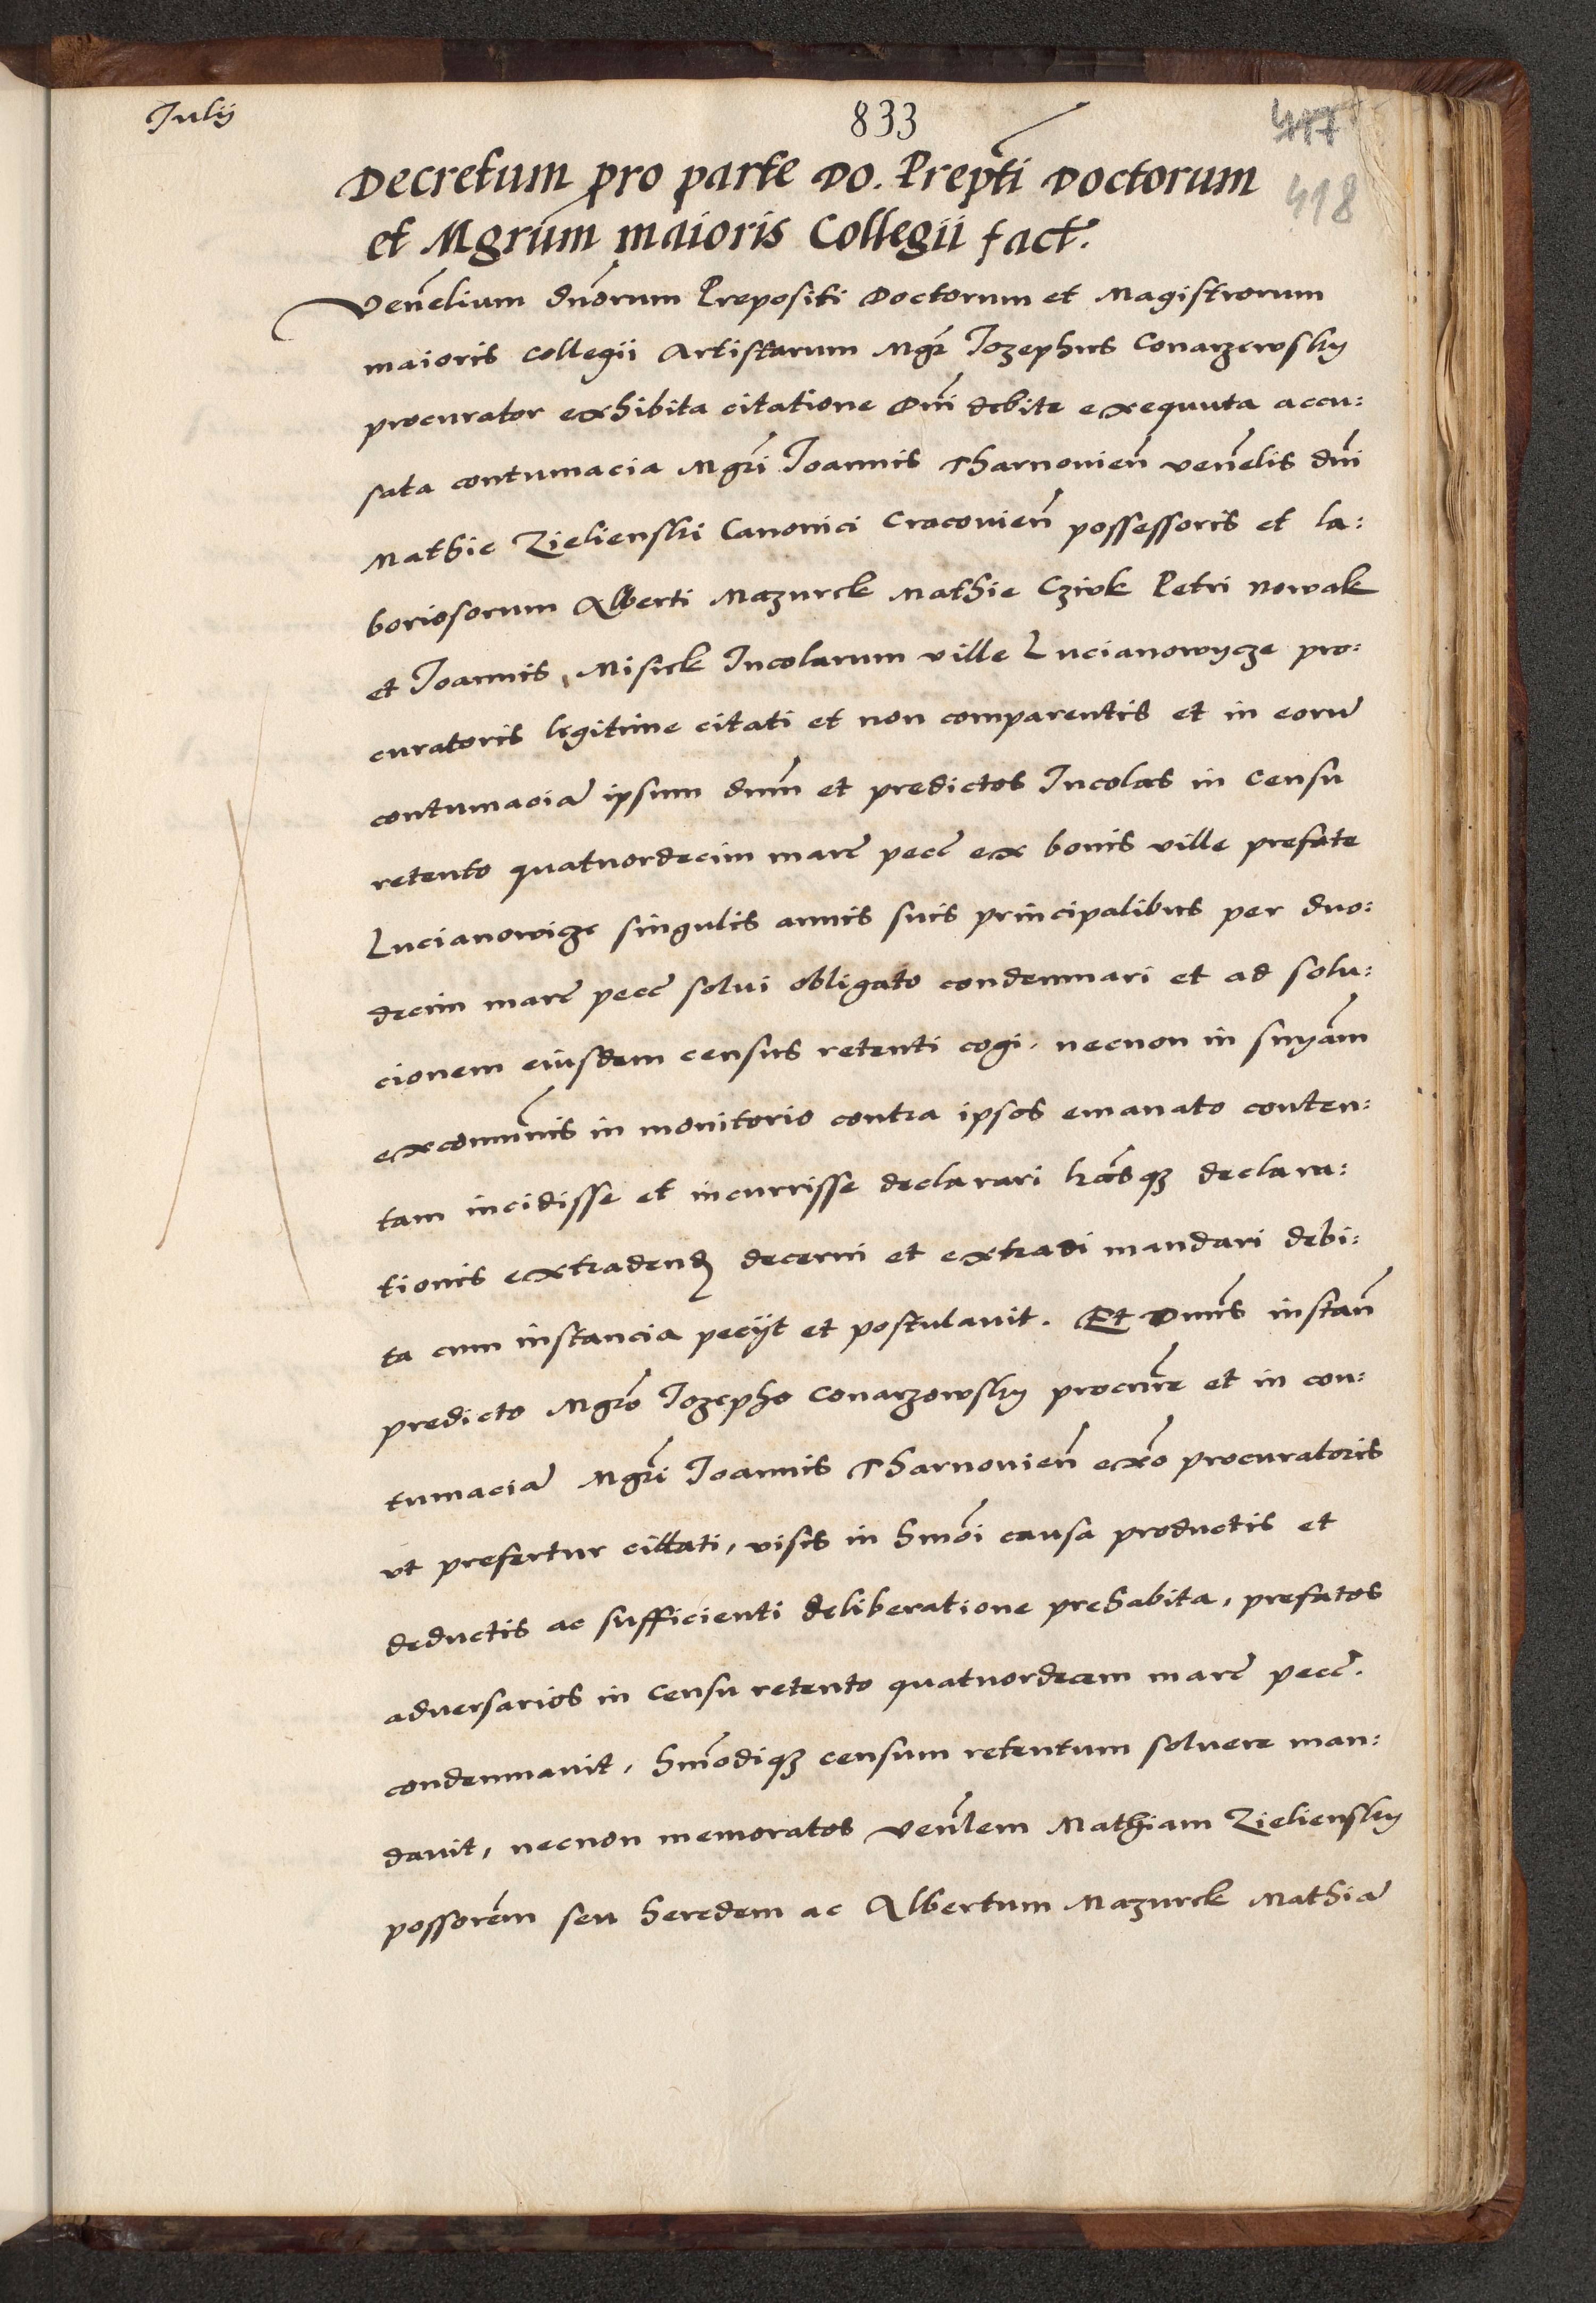 Julij
833
417
418
Decretum pro parte Do. Prepti Doctorum
et Mgrum maioris Collegii fact.
Venelium dnorum Prepositi Doctorum et Magistrorum
maioris collegii Artistarum Mgr Iozephus Conarzewsky
procurator exhibita citatione Dni debite exequuta accu:
sata contumacia Mgri Joannis Tharnovien venelis dni
Mathie Zielienski Canonici Cracovien possessoris et la:
boriosorum Alberti Mazurek Mathie Cziok Petri Nowak
et Joannis Misiek Incolarum ville Lucianowycze pro:
curatoris legitime citati et non comparentis et in eorum
contumaciam ipsum dnm et predictos Incolas in censu
retento quatuordecim marc pecc ex bonis ville prefate
Lucianowicze singulis annis suis principalibus per duo:
decim marc pecc solui obligato condemnari et ad solu:
cionem eiusdem census retenti cogi, necnon in snyam
excommunis in monitorio contra ipsos emanato conten:
tam incidisse et incurrisse declarari lrasq declara:
tionis extradend decerni et extradi mandari debi:
ta cum instancia pecijt et postulavit. Et Dnus instan
predicto Mgro Iozepho Conarzowsky procure et in con:
tumaciam Mgri Joannis Tharnovien exo procuratoris
ut prefertur cittati, visis in hmoi causa productis et
deductis ac sufficienti deliberatione prehabita, prefatos
adversarios in censu retento quatuordecem marc pecc.
condemnavit, hmodiq censum retentum solvere man:
davit, necnon memoratos venlem Mathiam Zieliensky
possorem seu heredem ac Albertum Mazurek Mathiam